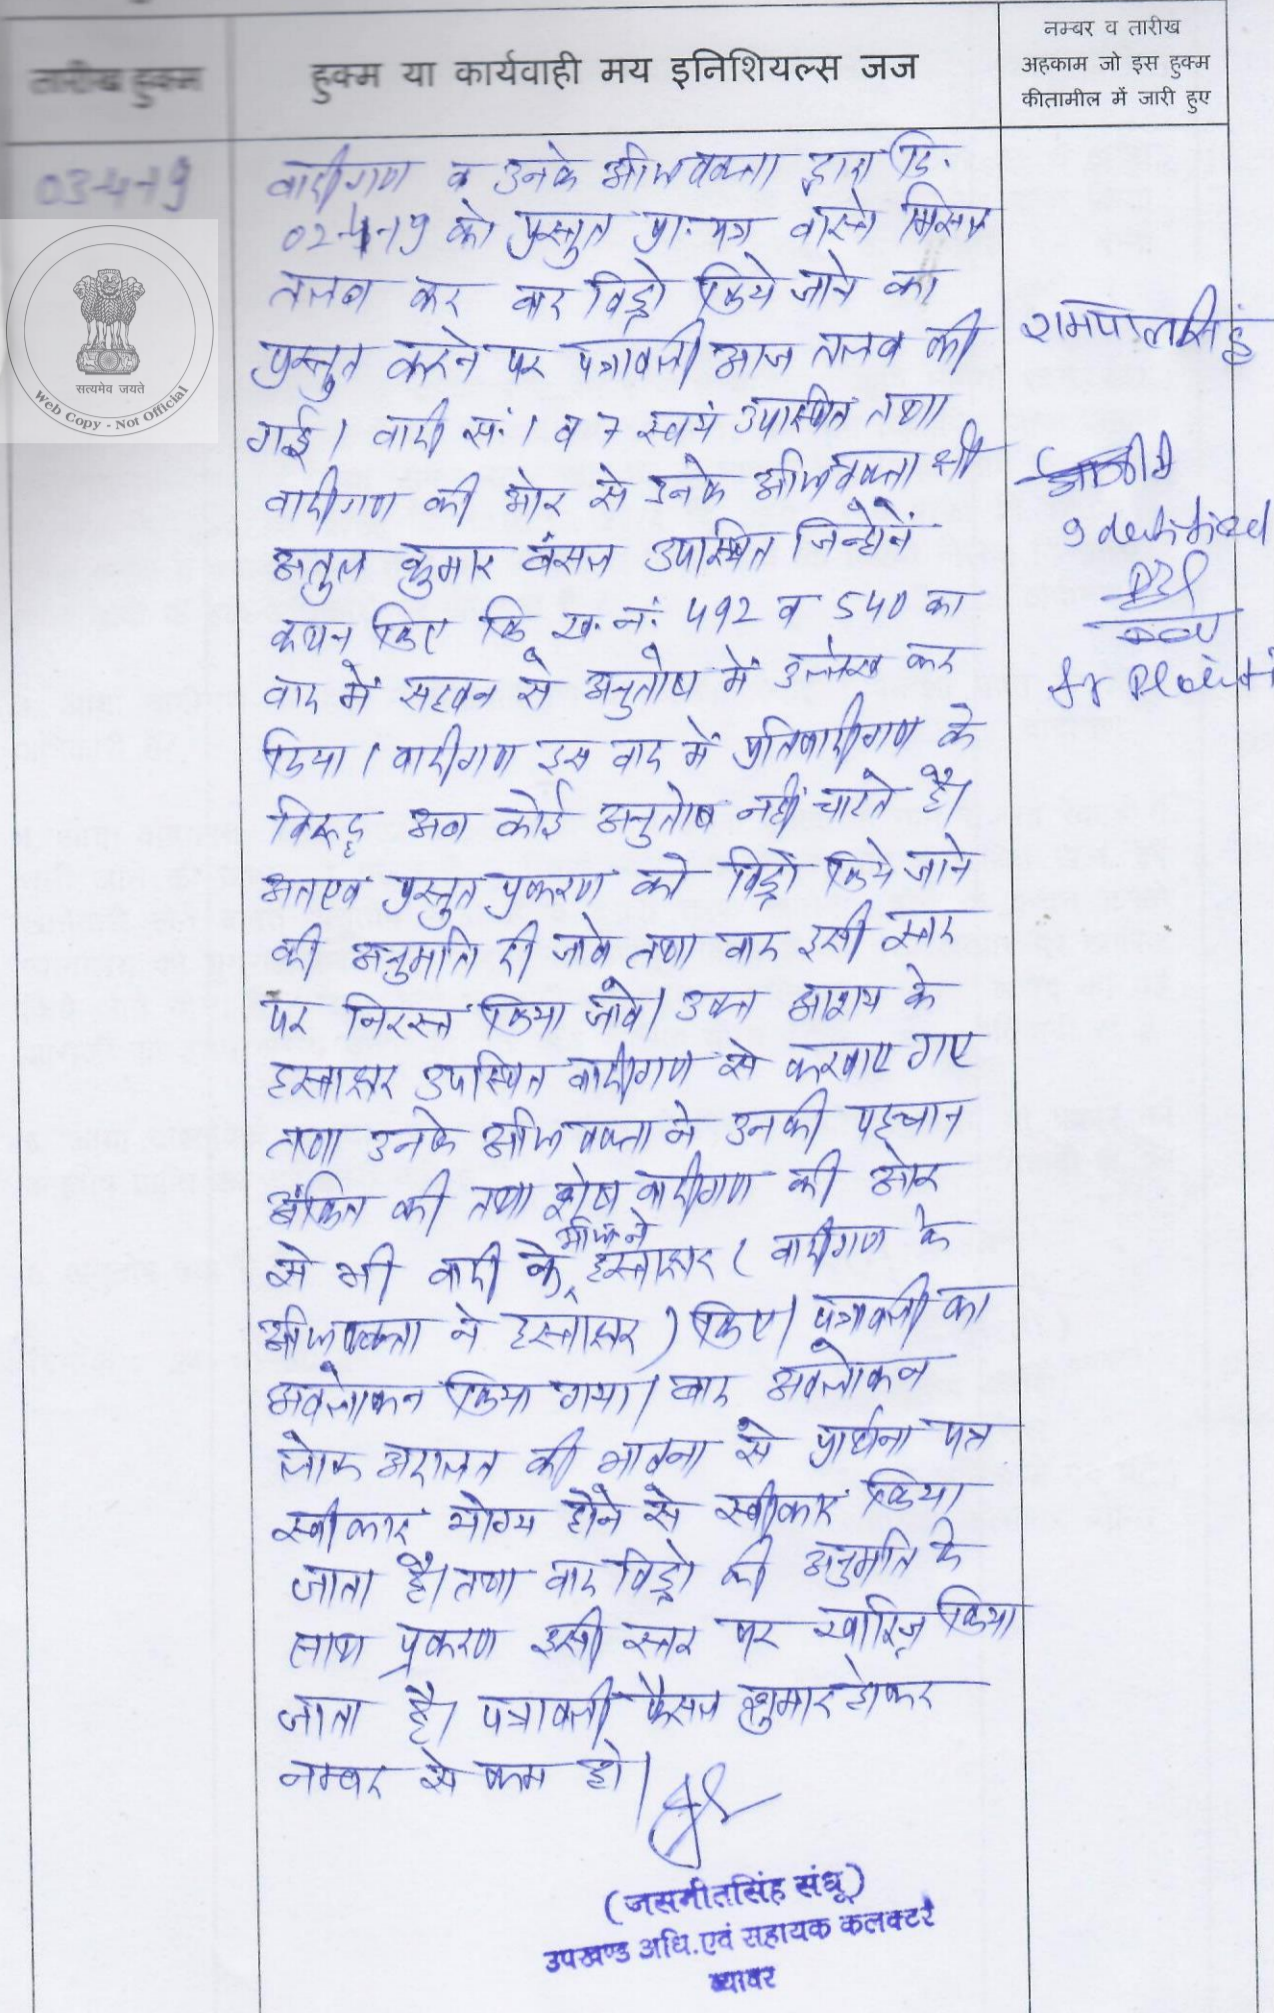 नम्बर व तारीख
तारीख हुक्म
हुक्म या कार्यवाही मय इनिशियल्स जज
अहकाम जो इस हुक्म
कीतामील में जारी हुए
03-4-19
वादीगण व उनके अभिभाषक द्वारा दि.
02-4-19 को प्रस्तुत प्रा. पत्र वास्ते मिसल
तलब कर वाद विड्रो किये जाने का
प्रस्तुत करने पर पत्रावली आज तलब की
गई। वादी सं. 1 व 7 स्वयं उपस्थित तथा
वादीगण की ओर से उनके अभिभाषक श्री
अतुल कुमार बंसल उपस्थित जिन्होनें
कथन किए कि ख. नं. 492 व 540 का
वाद में सहवन से अनुतोष में उल्लेख कर
दिया। वादीगण इस वाद में प्रतिवादीगण के
विरूद्ध अब कोई अनुतोष नहीं चाहते है।
अतएव प्रस्तुत प्रकरण को विड्रो किये जाने
की अनुमति दी जावे तथा वाद इसी स्तर
पर निरस्त किया जावे। उक्त आशय के
हस्ताक्षर उपस्थित वादीगण से करवाए गए
तथा उनके अभिभाषक ने उनकी पहचान
अंकित की तथा शेष वादीगण की ओर
से भी वादी के हस्ताक्षर ( वादीगण के
अभिभाषक ने हस्ताक्षर ) किए। पत्रावली का
अवलोकन किया गया। बाद अवलोकन
लोक अदालत की भावना से प्रार्थना पत्र
स्वीकार योग्य होने से स्वीकार किया
जाता है। तथा वाद विड्रो की अनुमति के
साथ प्रकरण इसी स्तर पर खारिज किया
जाता है। पत्रावली फैसल शुमार होकर
नम्बर से कम हो।
रामपालसिंह
Identified
for Plainti
(जसमीतसिंह संधू)
उपखण्ड अधि. एवं सहायक कलक्टर
ब्यावर
सत्यमेव जयते
Web Copy - Not Official